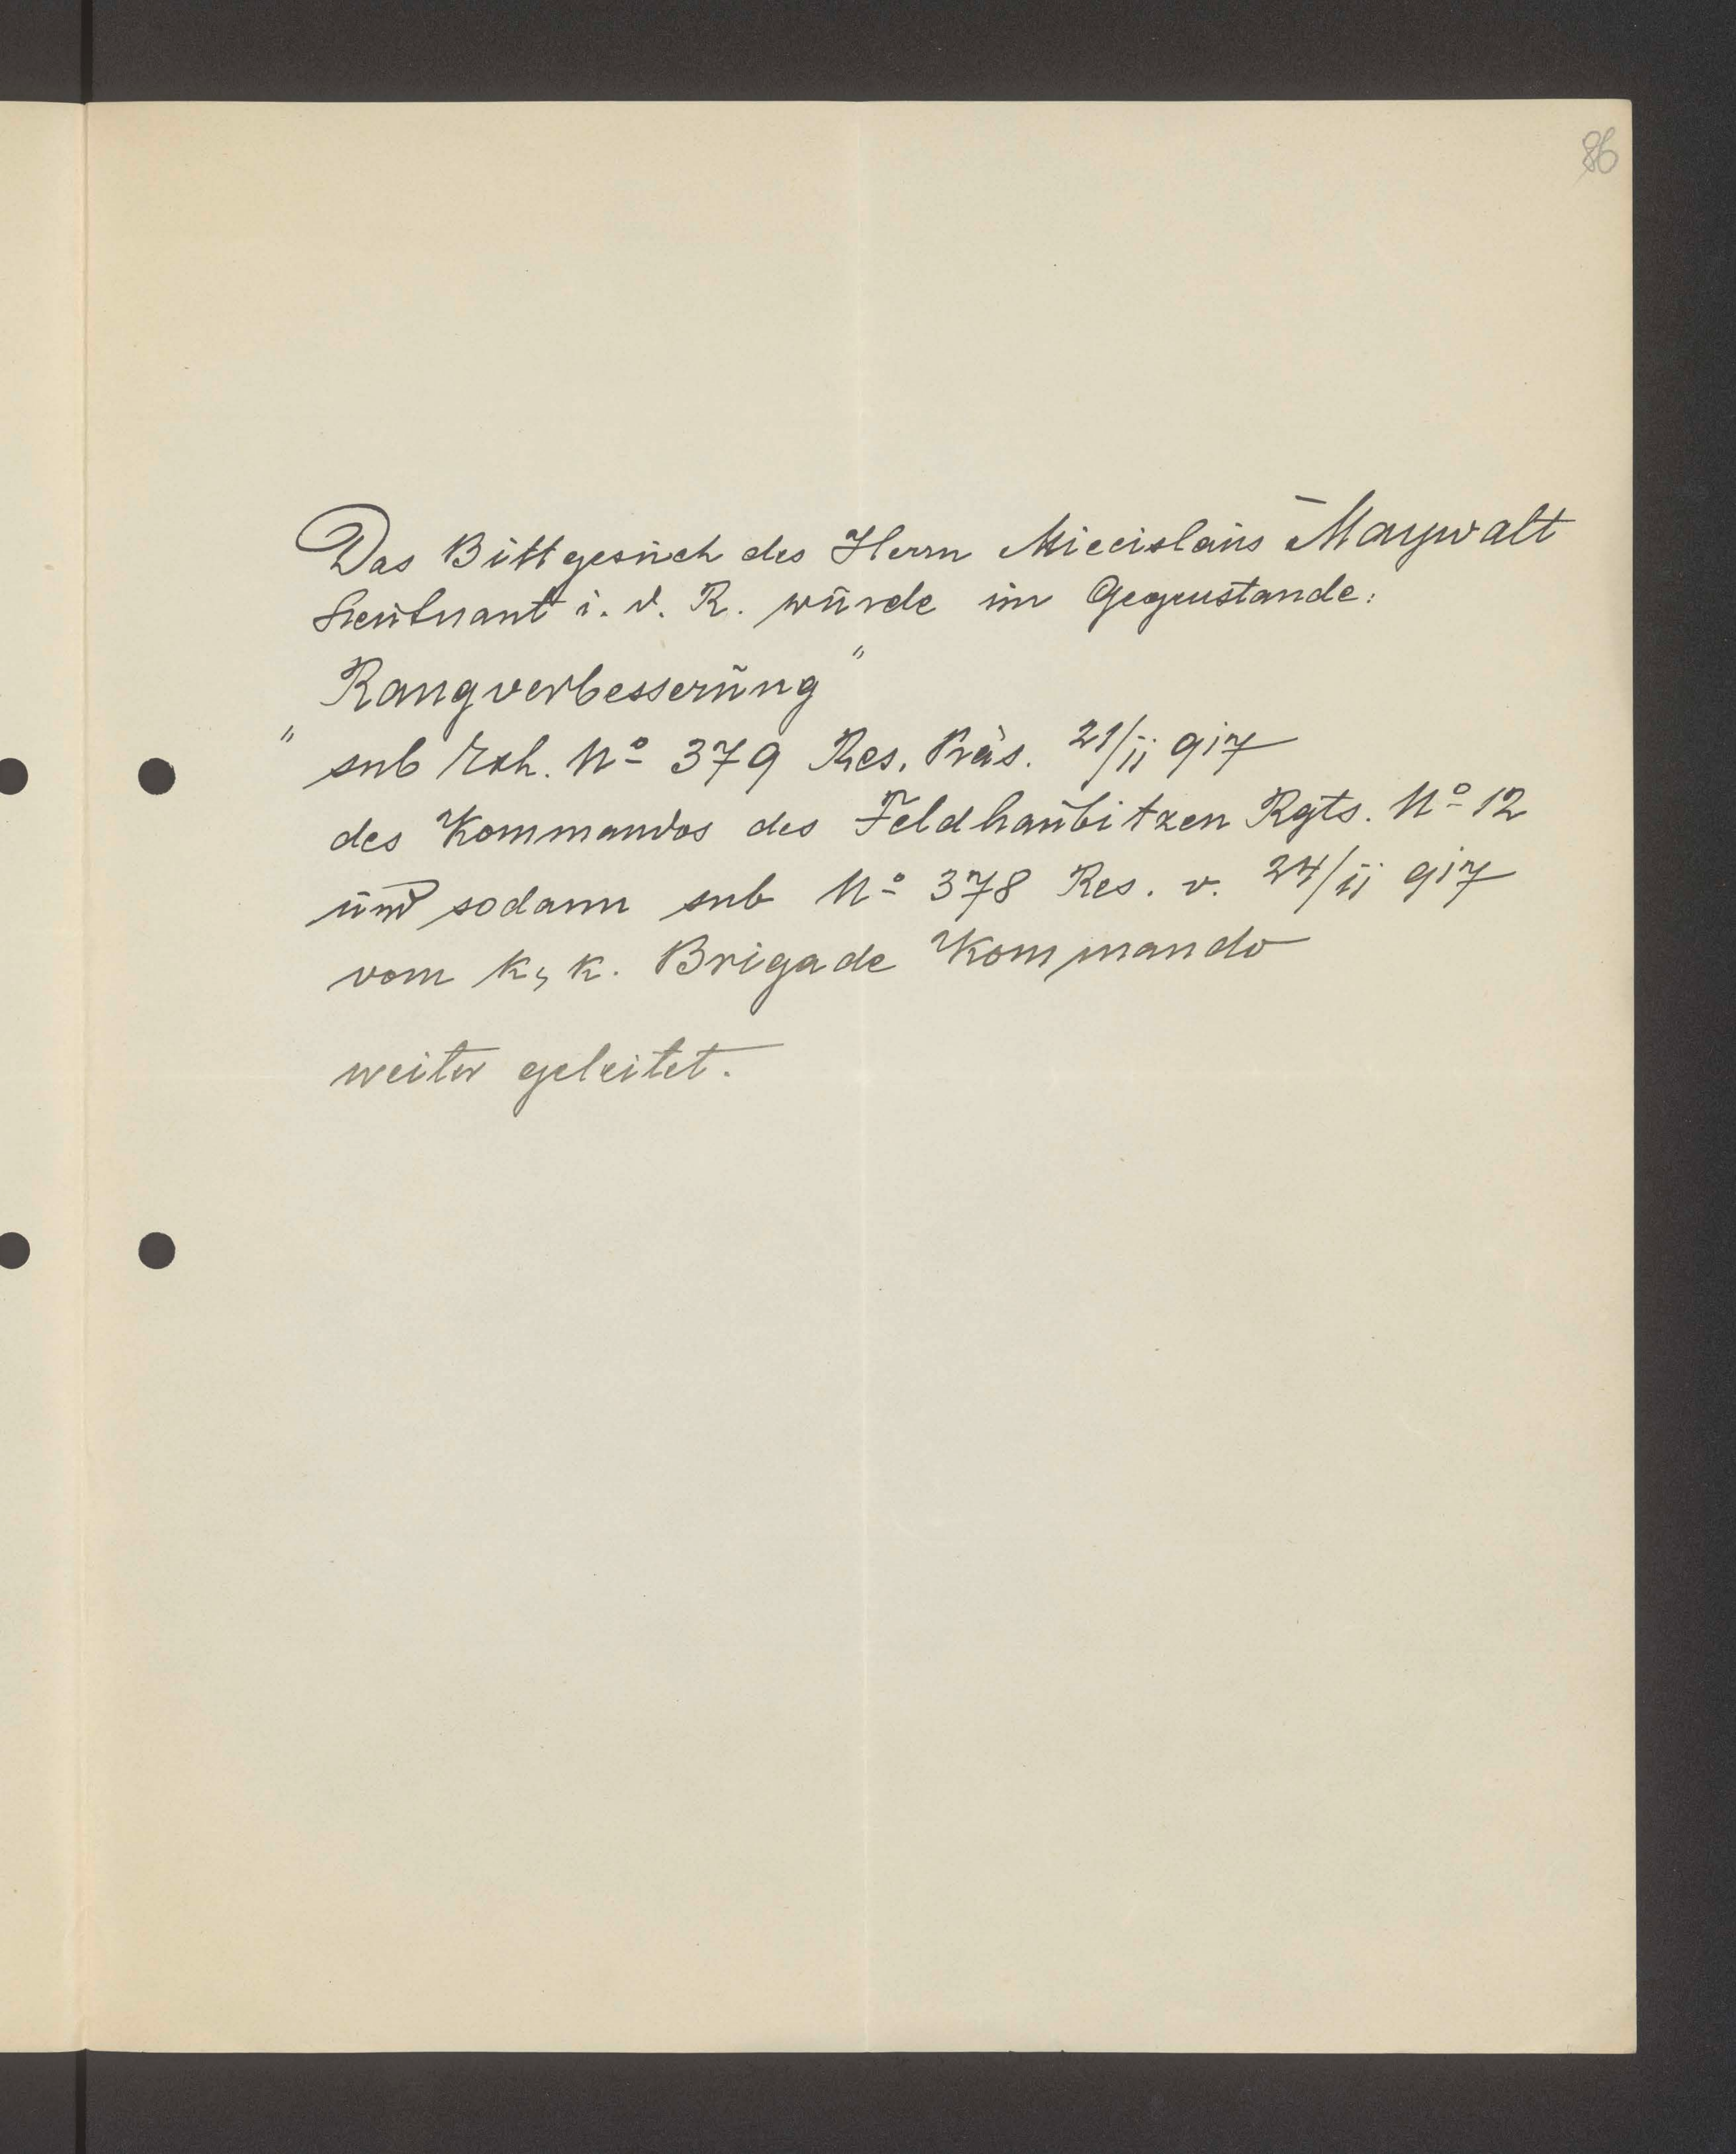 86
Das Bittgesuch des Herrn Miecislaus Maywalt
Leutnant i. d. R. wurde im Gegenstande:
Rangverbesserung"
" sub Exh. No 379 Res. Präs. 21/ii 917
des Kommandos des Feldhaubitzen Rgts. No 12
und sodann sub No 378 Res. v. 24/ii 917
vom k, k. Brigade Kommando
weiter geleitet.